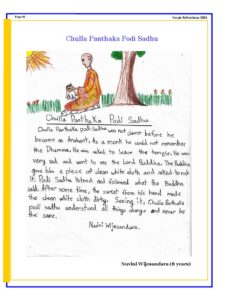 Year IV
Vesak Reflections 2004
Chulla Panthaka Podi Sadhu
Chulla Panthaka Podi Sadhu
Chulla Panthaka podi sadhu was not clever before he
become an Arahant. As a monk he could not remember
the Dhamma. He was asked to leave the temple. He was
very sad and went to see the Lord Buddha. The Buddha
gave him a piece of clean white cloth and asked to rub
it. Podi Sadhu listned and followed what the Buddha
said. After some time, the sweat from his hand made
the clean white cloth dirty. Seeing it, Chulla Panthaka
podi sadhu understood all things change and never be
the same.
Nuvini Wijesundara.
Nuvini Wijesundara (8 years)